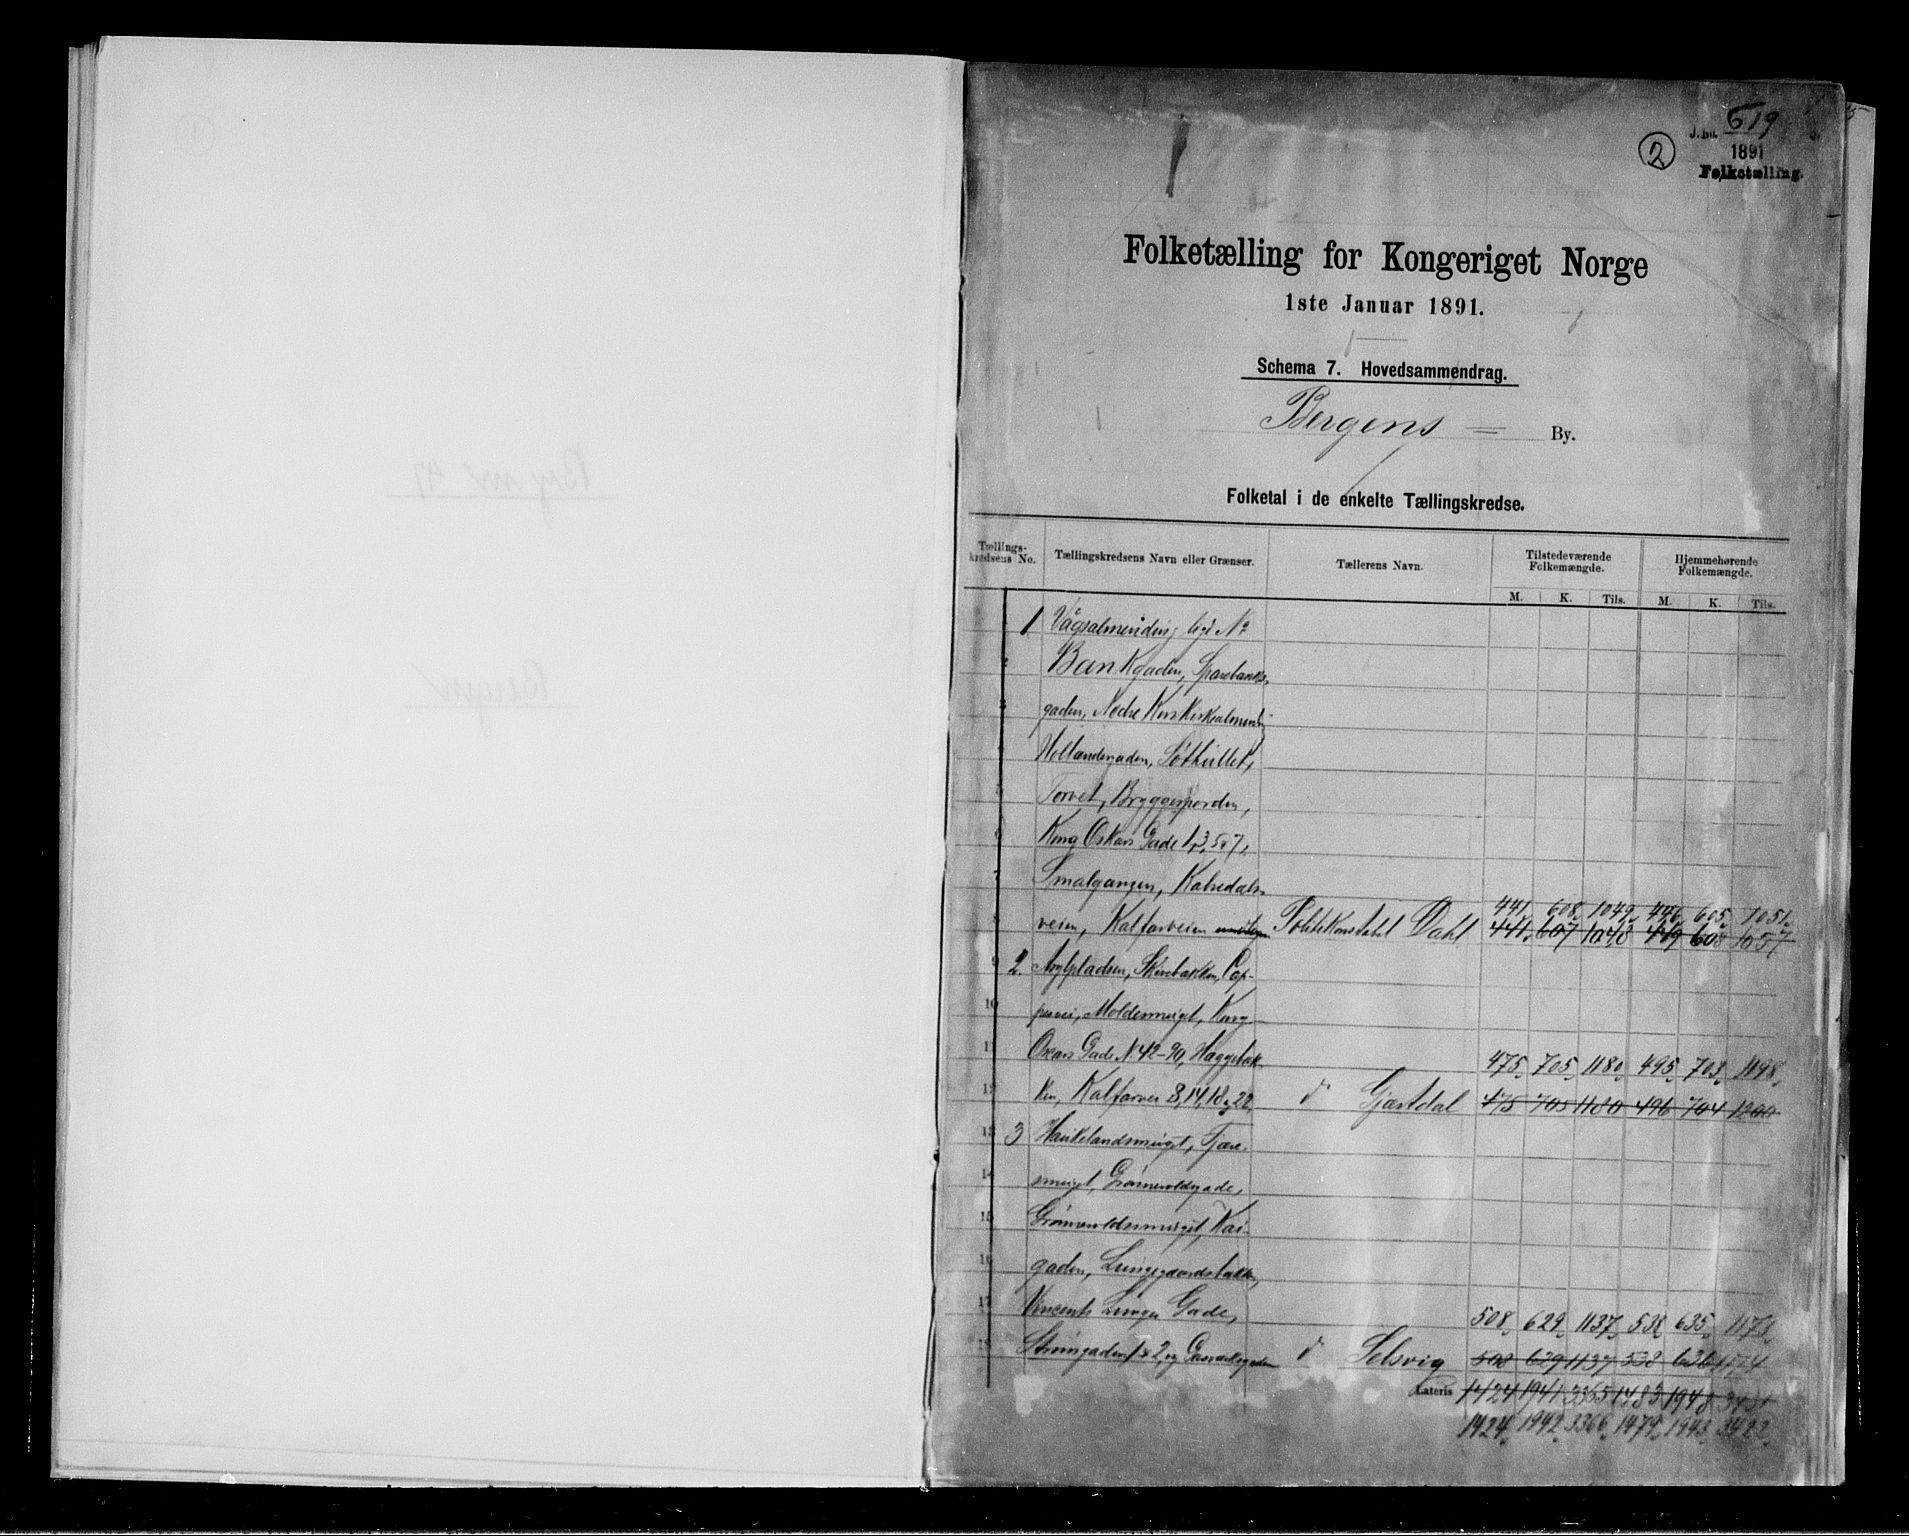 2
J. No. 519
1891
Folketælling.
Folketælling for Kongeriget Norge
1ste Januar 1891.
Schema 7. Hovedsammendrag.
Bergens By.
Folketal i de enkelte Tællingskredse.
Tællingskredsens No. Tællingskredsens Navn eller Grænser. Tællerens Navn. Tilstedeværende Folkemængde. Hjemmehørende Folkemængde.
M. K. Tils. M. K. Tils.
1 Vågsalmending lige No
Bankgaden, Sparebanks-
gaden, Nedre Korskirkealmend
Hollændergaden, Söthullet,
Torvet, Bryggesporden,
Kong Oskars Gade 1, 3, 5 & 7,
Smalgangen, Kalvedals-
441 608 1049 446 605 1051
veien, Kalfarveien Politikonstabel Dahl 441 607 1048 449 608 1057
2. Asylpladsen, Skivebakken, Cap-
pesvei, Moldesmuget, Kong
Oscars Gade N 42-90, Haggebak-
475 705 1180 495 703 1198
ken, Kalfarvei 8, 14, 18 & 22, d Gjærdal 475 705 1180 496 704 1200
3 Haukelandsmuget, Tjære-
smuget, Grønevoldsgade,
Grønevoldsmuget, Kai-
gaden, Lungegaardsbakken,
Vincents Lunges Gade,
508 629 1137 538 635 1173
Strömgaden 1 & 2, og Gasværksgaden d Selsvig 508 629 1137 538 636 1174
Lateris 1424 1941 3365 1483 1948 3431
1424 1942 3366 1479 1943 3422